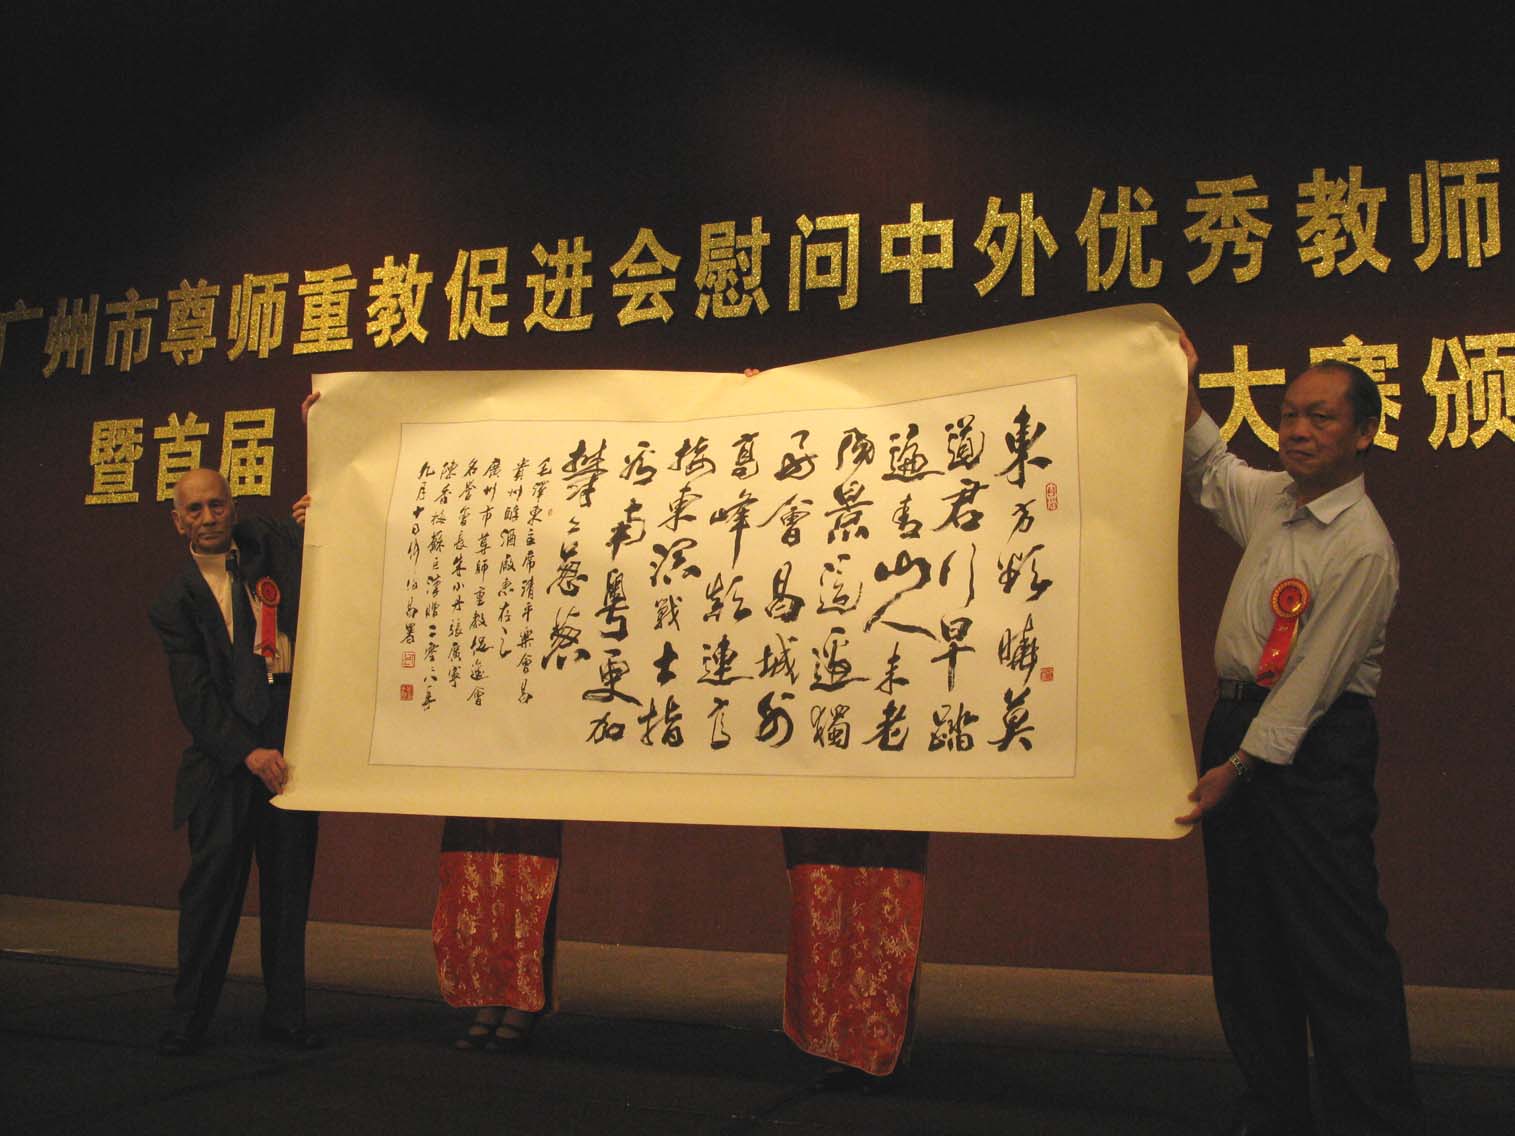 广州市尊师重教促进会慰问中外优秀教师
暨首届 大赛颁
東方欲曉莫
道君行早踏
遍青山人未老
風景這邊獨
好會昌城外
高峰顛連直
接東溟戰士指
看南粵更加
毛澤東主席清平樂會昌
貴州 酒廠惠存
廣州市尊師重教促進會
名誉會長朱小丹張廣寧
二零零六年
九月十日